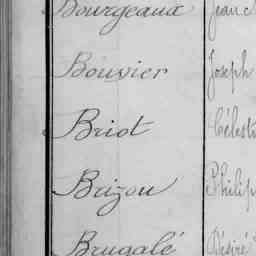 Bourgeaux Jean
Bouvier Joseph
Briot Célest
Brizou Philip
Brugalé Désiré